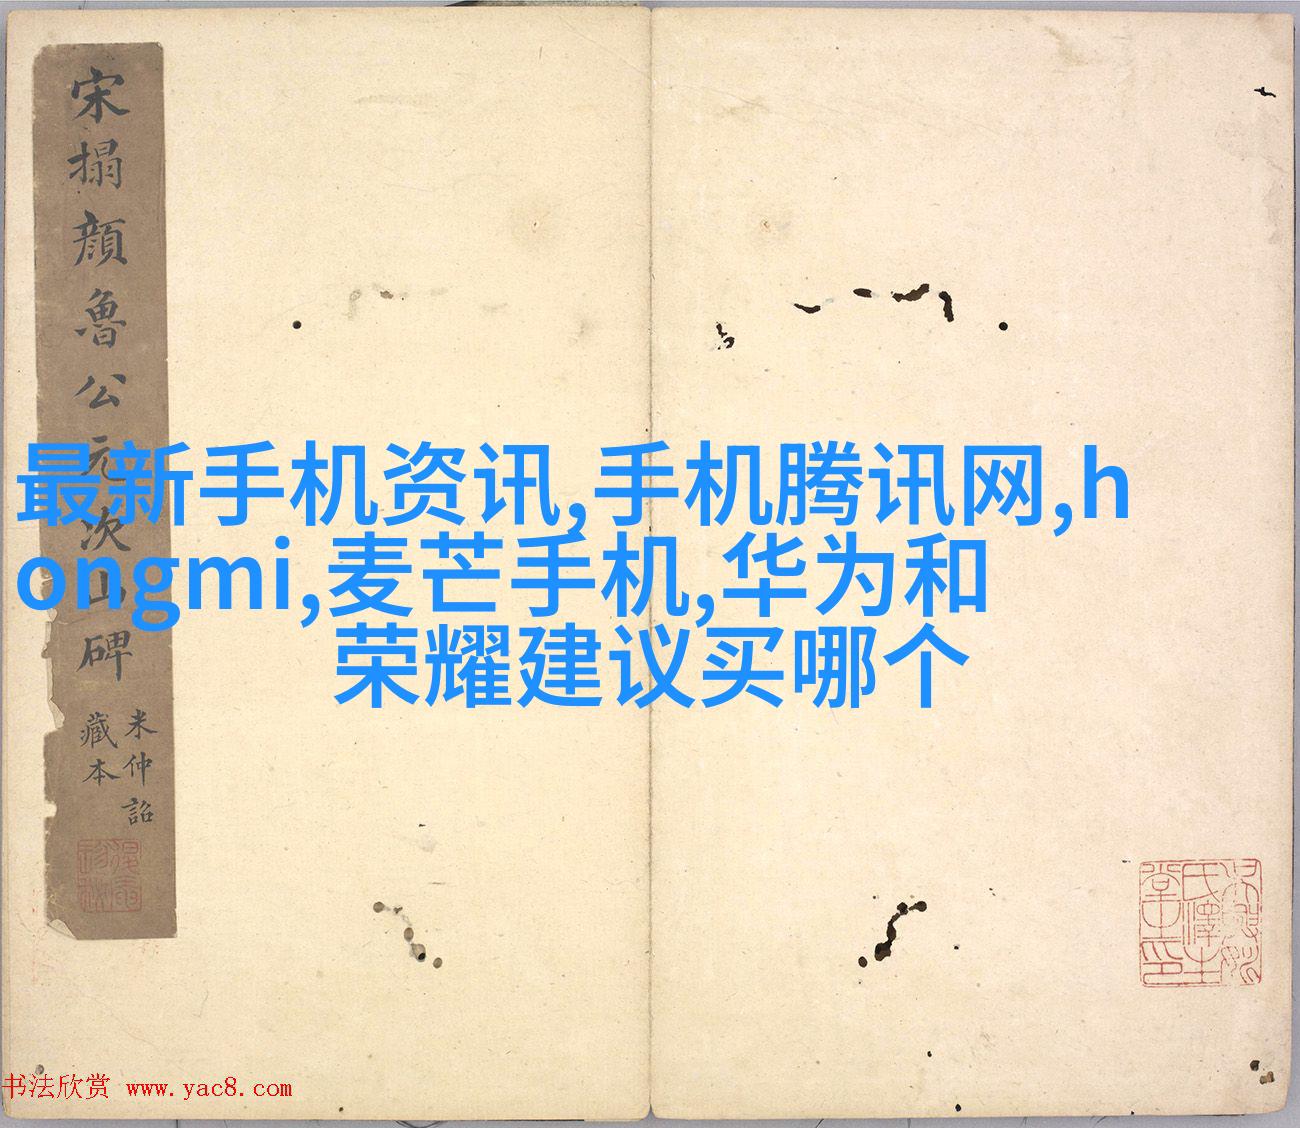 宋搨顔魯公元次山碑
米仲詔
藏本
最新手机资讯,手机腾讯网,h
ongmi,麦芒手机,华为和
荣耀建议买哪个
书法欣赏 www.yac8.com